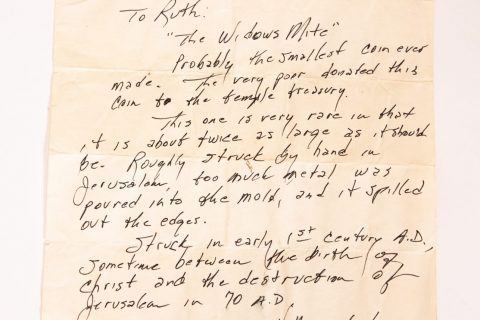 To Ruth:
"The Widows Mite"
Probably the smallest coin ever
made. The very poor donated this
coin to the temple treasury.
This one is very rare in that
it is about twice as large as it should
be. Roughly struck by hand in
Jerusalem, too much metal was
poured into the mold, and it spilled
out the edges.
Struck in early 1st century A.D.,
sometime between the birth of
Christ and the destruction of
Jerusalem in 70 A.D.